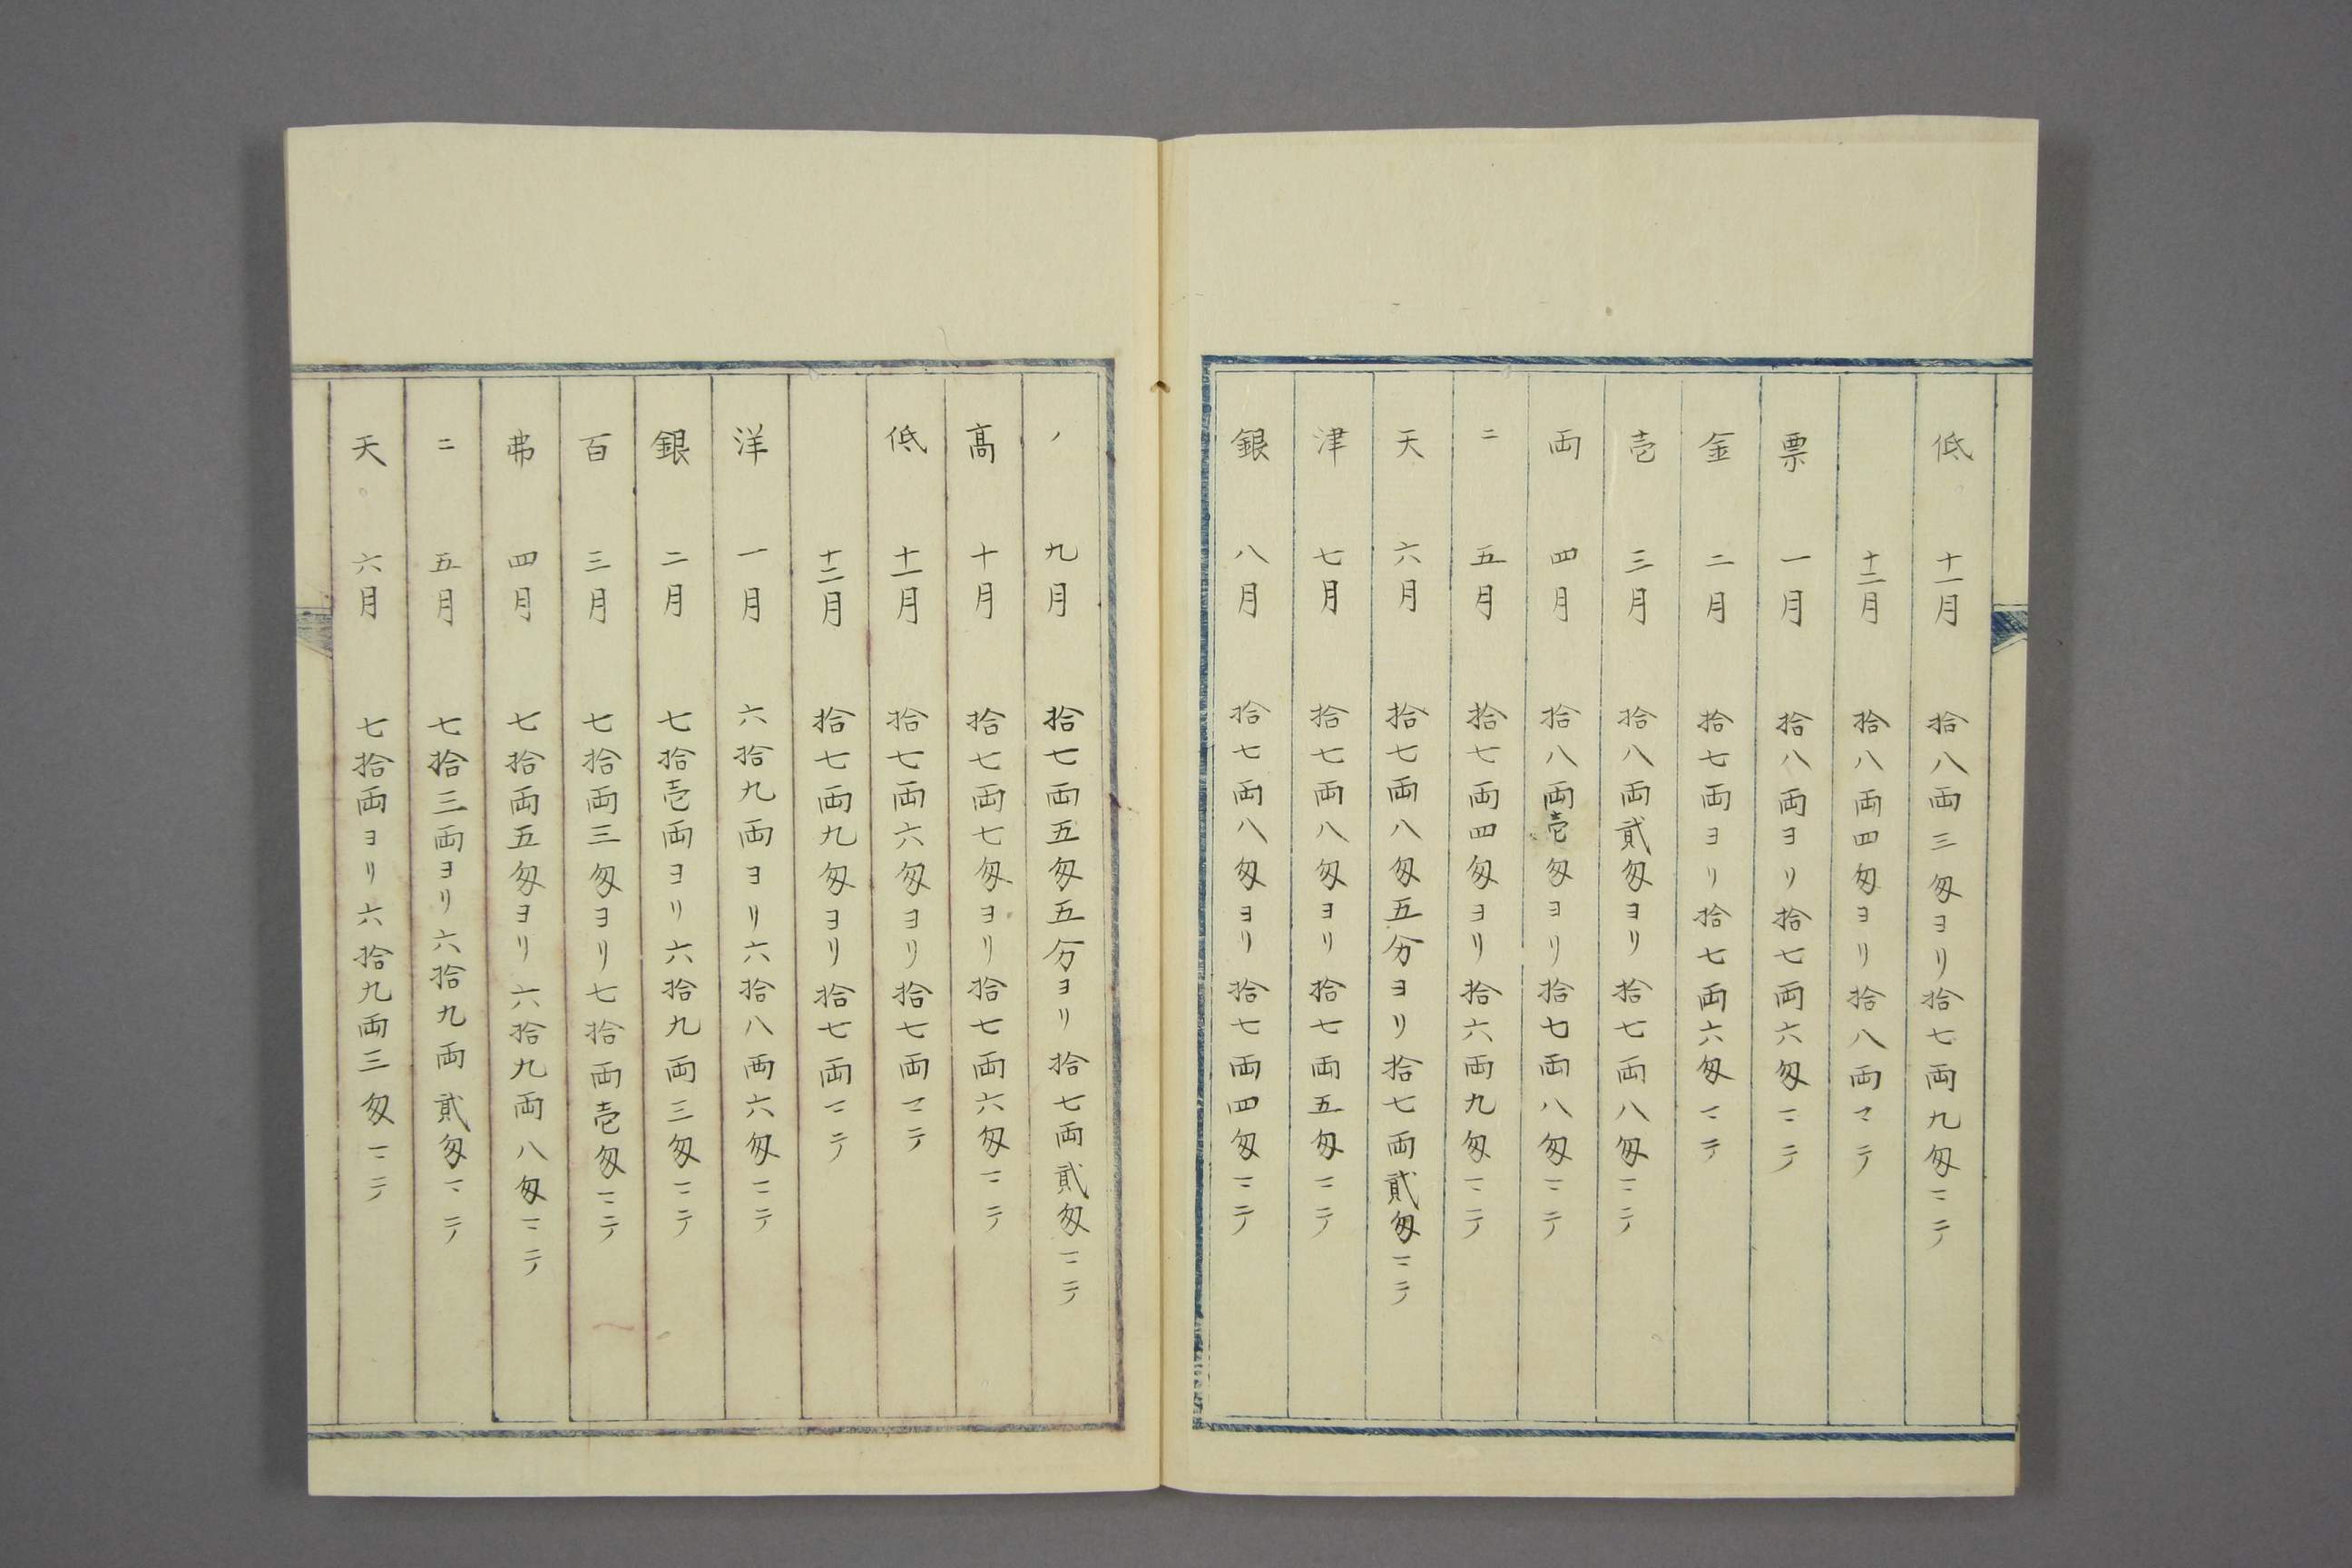 低 十一月 拾八両三匁ヨリ拾七両九匁ニテ
十二月 拾八両四匁ヨリ拾八両マテ
票 一月 拾八両ヨリ拾七両六匁ニテ
金 二月 拾七両ヨリ拾七両六匁ニテ
壱 三月 拾八両貳匁ヨリ拾七両八匁ニテ
両 四月 拾八両壱匁ヨリ拾七両八匁ニテ
ニ 五月 拾七両四匁ヨリ拾六両九匁ニテ
天 六月 拾七両八匁五分ヨリ拾七両貳匁ニテ
津 七月 拾七両八匁ヨリ拾七両五匁ニテ
銀 八月 拾七両八匁ヨリ拾七両四匁ニテ
ノ 九月 拾七両五匁五分ヨリ拾七両貳匁ニテ
高 十月 拾七両七匁ヨリ拾七両六匁ニテ
低 十一月 拾七両六匁ヨリ拾七両マテ
十二月 拾七両九匁ヨリ拾七両ニテ
洋 一月 六拾九両ヨリ六拾八両六匁ニテ
銀 二月 七拾壱両ヨリ六拾九両三匁ニテ
百 三月 七拾両三匁ヨリ七拾両壱匁ニテ
弗 四月 七拾両五匁ヨリ六拾九両八匁ニテ
ニ 五月 七拾三両ヨリ六拾九両貳匁ニテ
天 六月 七拾両ヨリ六拾九両三匁ニテ